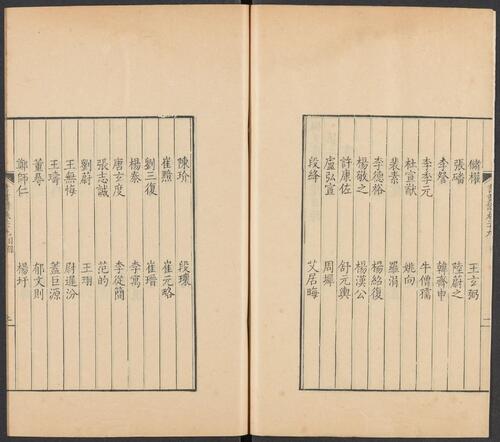 儲權　王玄弼
張璠　陸蔚之
李詧　韓齊申
李季元　牛僧孺
杜宣猷　姚向
裴素　羅涓
李德裕　楊紹復
楊敬之　楊漢公
許康佐　舒元輿
盧弘宣　周墀
段絳　艾居晦
陳玠　段瓌
崔黯　崔元略
劉三復　崔瑨
楊泰　李寓
唐玄度　李從簡
張志誠　范的
劉蔚　王
王無悔　尉遲汾
王璹　蓋巨源
董　郁文則
鄭師仁　楊圩